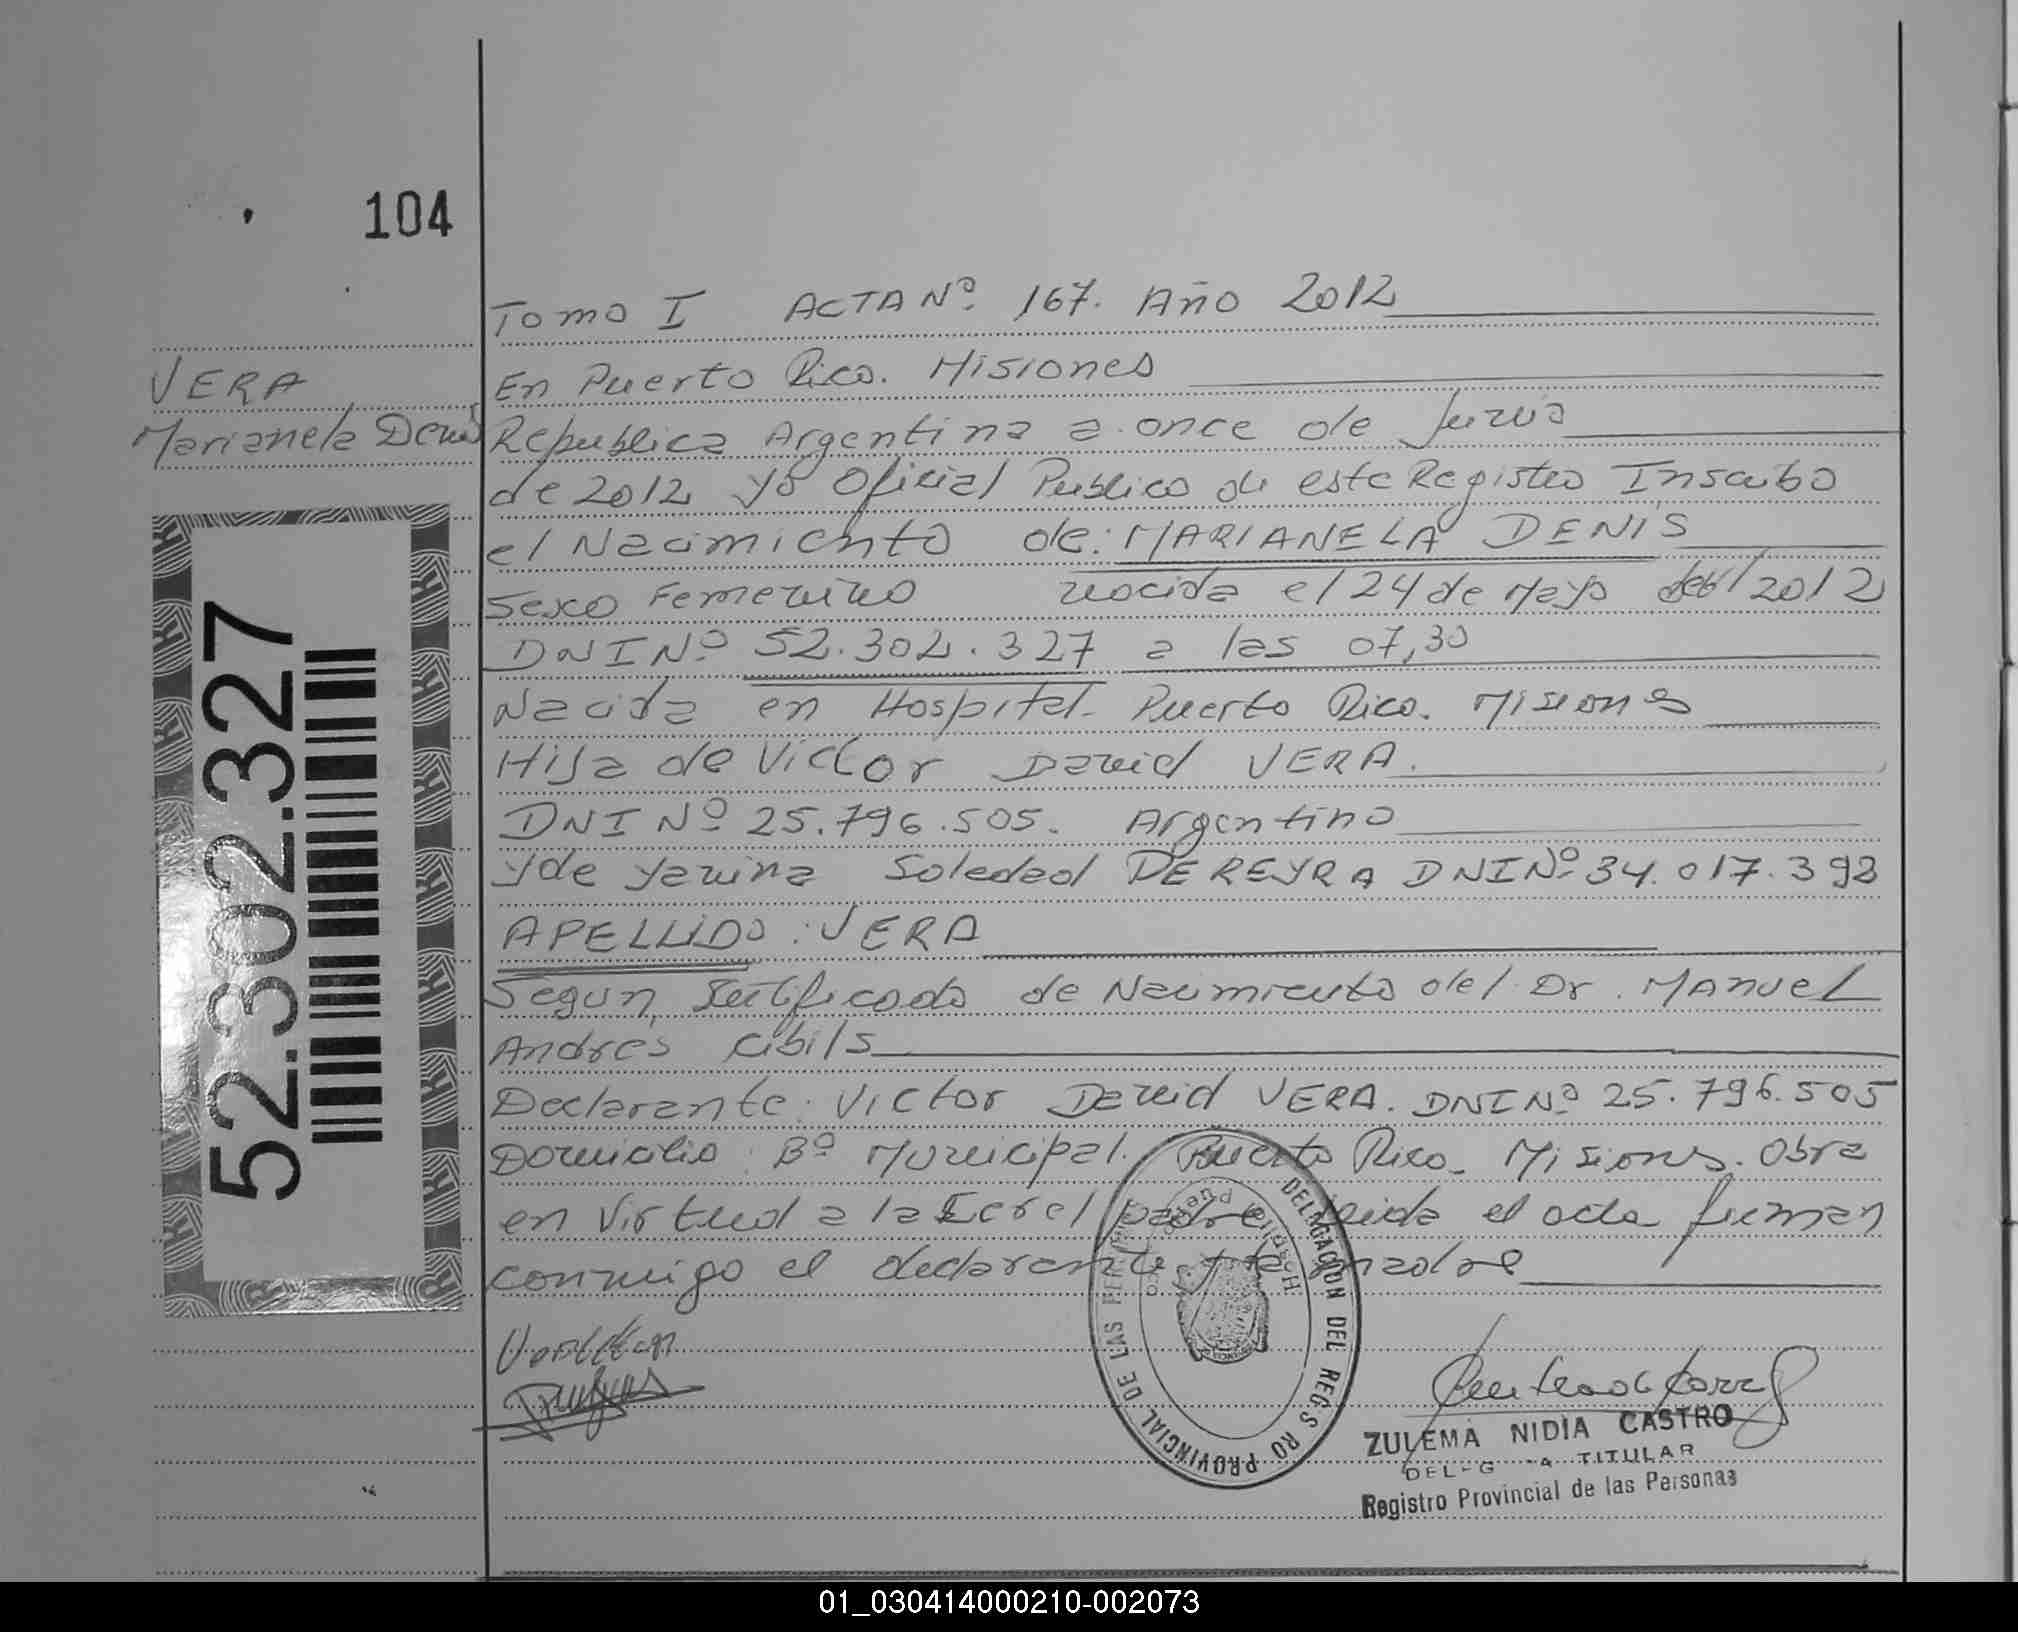 104
VERA
Marianela Denis
52.302.327
Tomo I ACTA Nº 167. Año 2012
En Puerto Rico. Misiones
Republica Argentina a once de Junio
de 2012 yo Oficial Publico de este Registro Inscribo
el Nacimiento de: MARIANELA DENIS
Sexo Femenino nacida el 24 de Mayo del 2012
DNI Nº 52.302.327 a las 07,30
Nacida en Hospital- Puerto Rico. Misiones
Hija de Victor David VERA.
DNI Nº 25.796.505. Argentino
y de Yanina Soledad PEREYRA DNI Nº 34.017.393
APELLIDO: VERA
Segun Sertificado de Nacimiento del Dr. MANUEL
Andres Cibils
Declarante: Victor David VERA. DNI Nº 25.796.505
Domicilio: Bº Municipal. Puerto Rico- Misiones. Obra
en Virtud a la el padre leida el acta firman
conmigo el declarante y la madre
DELEGACION DEL REGISTRO PROVINCIAL DE LAS PERSONAS
Hospital Puerto Rico
ZULEMA NIDIA CASTRO
DELEGADA TITULAR
Registro Provincial de las Personas
01_030414000210-002073